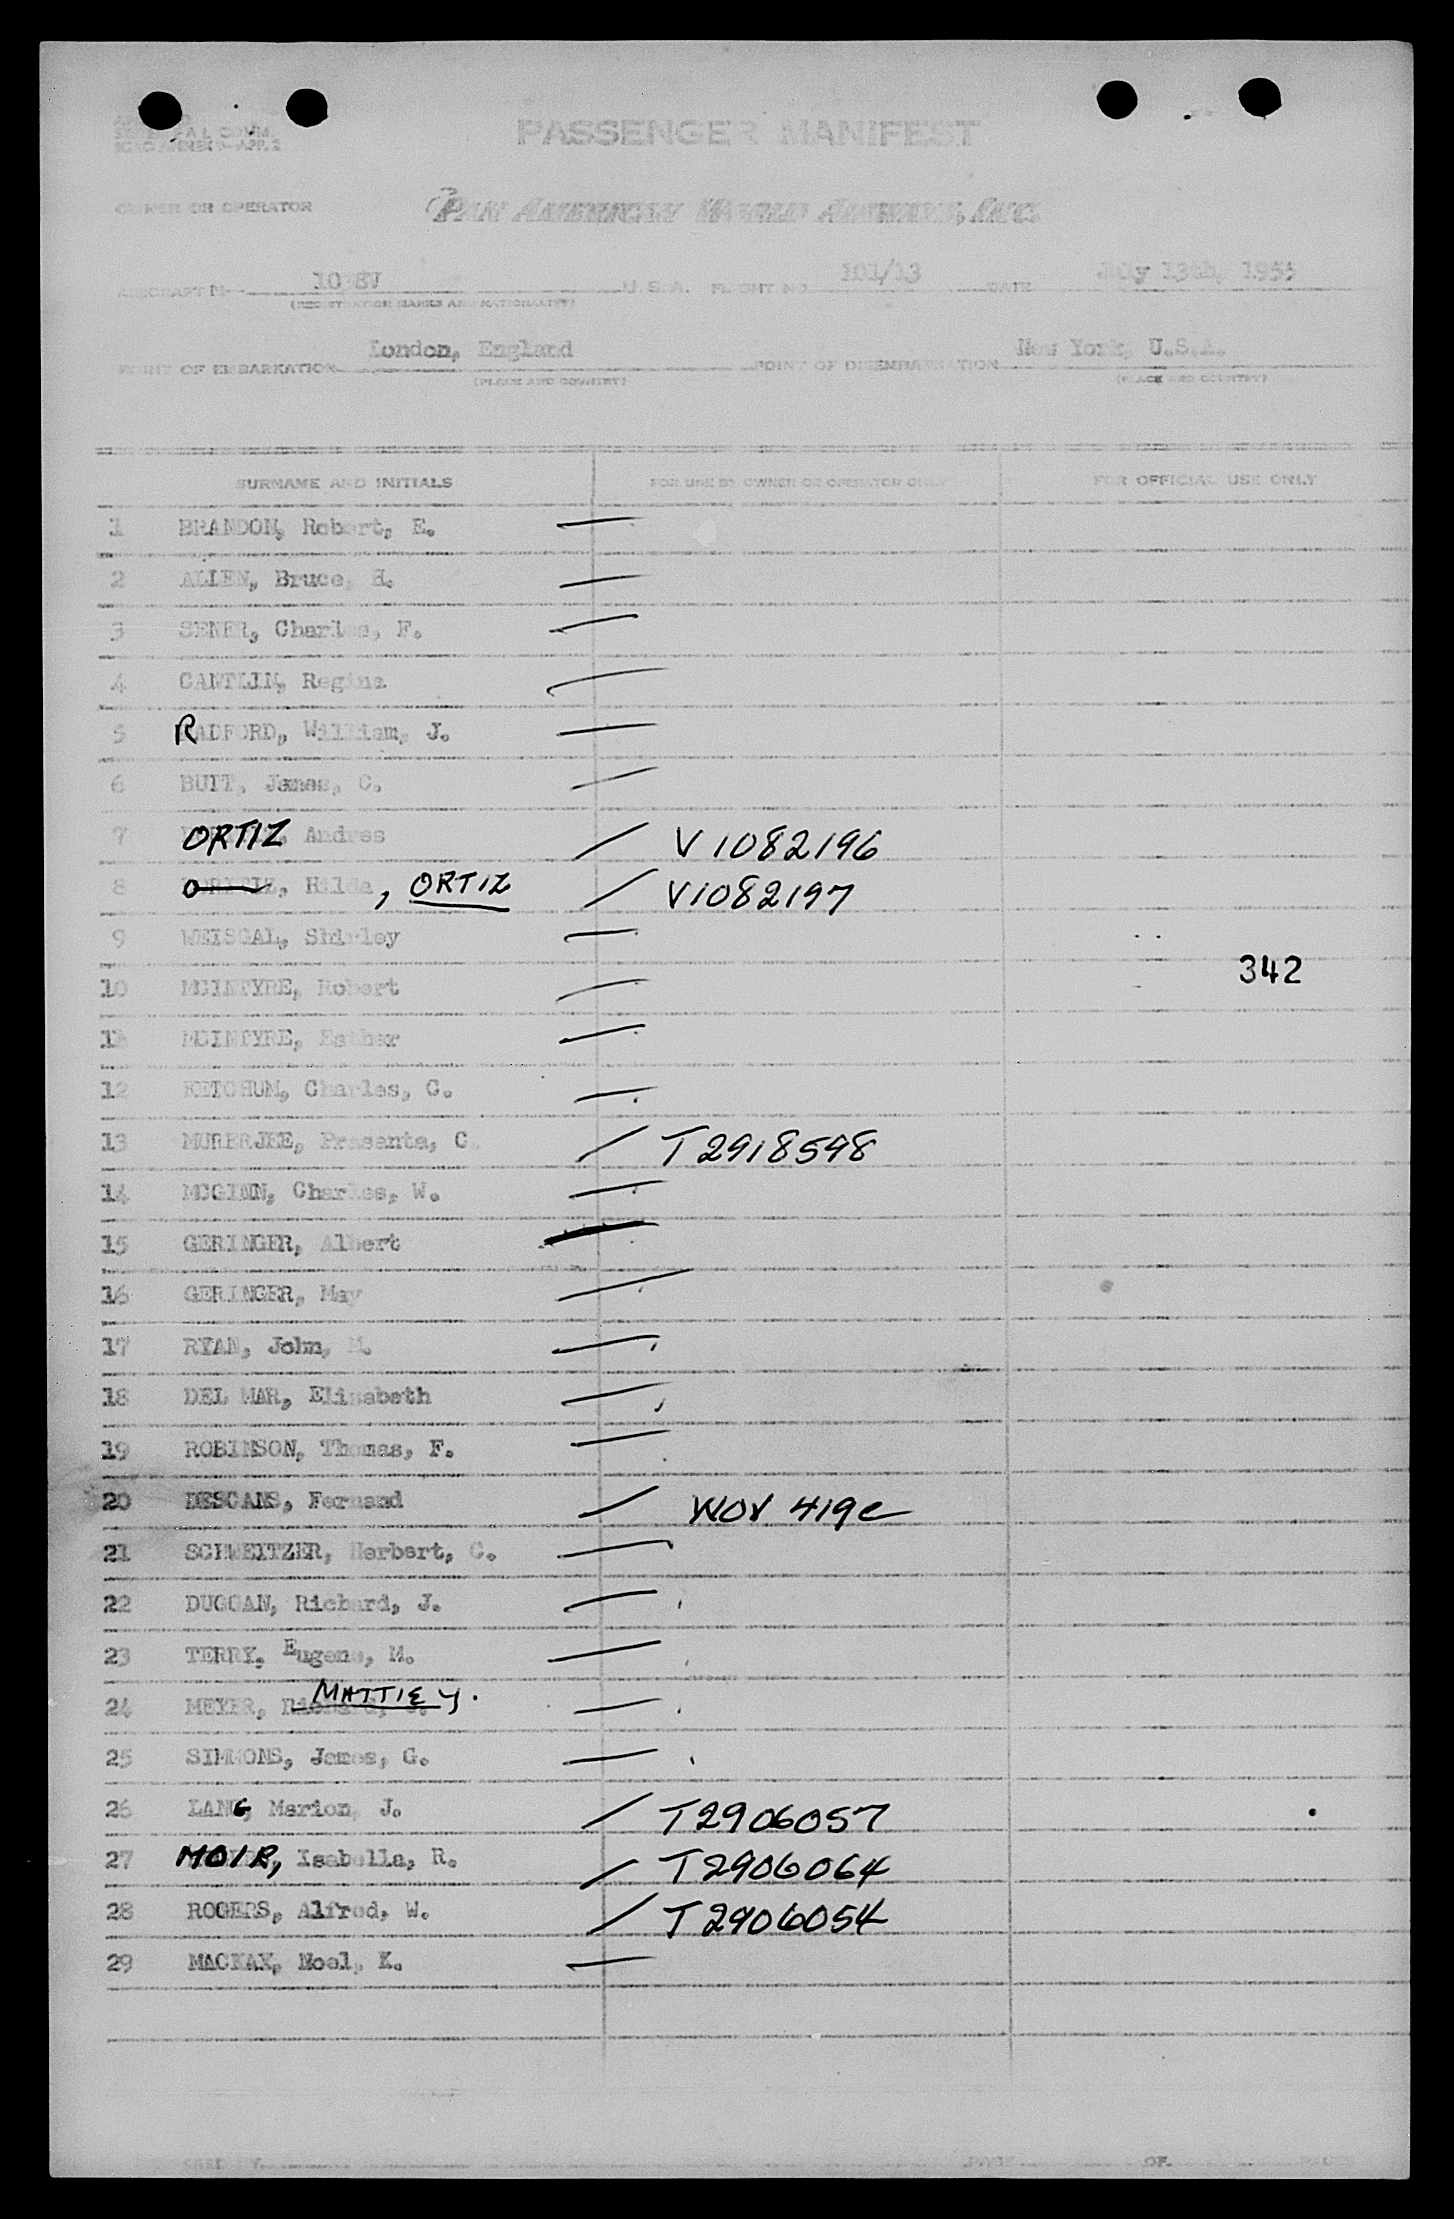 PASSENGER MANIFEST
OWNER OR OPERATOR PAN AMERICAN WORLD AIRWAYS, INC.
AIRCRAFT U.S.A. FLIGHT NO. 101/13 DATE July 13th, 1955
(REGISTRATION MARKS AND NATIONALITY)
POINT OF EMBARKATION London, England POINT OF DISEMBARKATION New York, U.S.A.
(PLACE AND COUNTRY) (PLACE AND COUNTRY)
SURNAME AND INITIALS FOR USE BY OWNER OR OPERATOR ONLY FOR OFFICIAL USE ONLY
1 BRANDON, Robert, E.
2 ALLEN, Bruce, H.
3 SENER, Charles, F.
4 CANTLIN, Regina
5 RADFORD, William, J.
6 BUTT, James, C.
7 ORTIZ, Andres V1082196
8 Hilda, ORTIZ V1082197
9 WEISGAL, Shirley
342
10 MCINTYRE, Robert
11 MCINTYRE, Esther
12 KETCHUM, Charles, G.
13 MUKERJEE, Prasanta, C. T2918598
14 MCGINN, Charles, W.
15 GERINGER, Albert
16 GERINGER, May
17 RYAN, John, M.
18 DEL MAR, Elisabeth
19 ROBINSON, Thomas, F.
20 DESCANS, Fernand WOV 419c
21 SCHWEITZER, Herbert, C.
22 DUGGAN, Richard, J.
23 TERRY, Eugene, M.
24 MEYER, MATTIE Y.
25 SIMMONS, James, G.
26 LANG, Marion, J. T2906057
27 MOIR, Isabella, R. T2906064
28 ROGERS, Alfred, W. T2906054
29 MACKAY, Noel, K.
PAGE OF